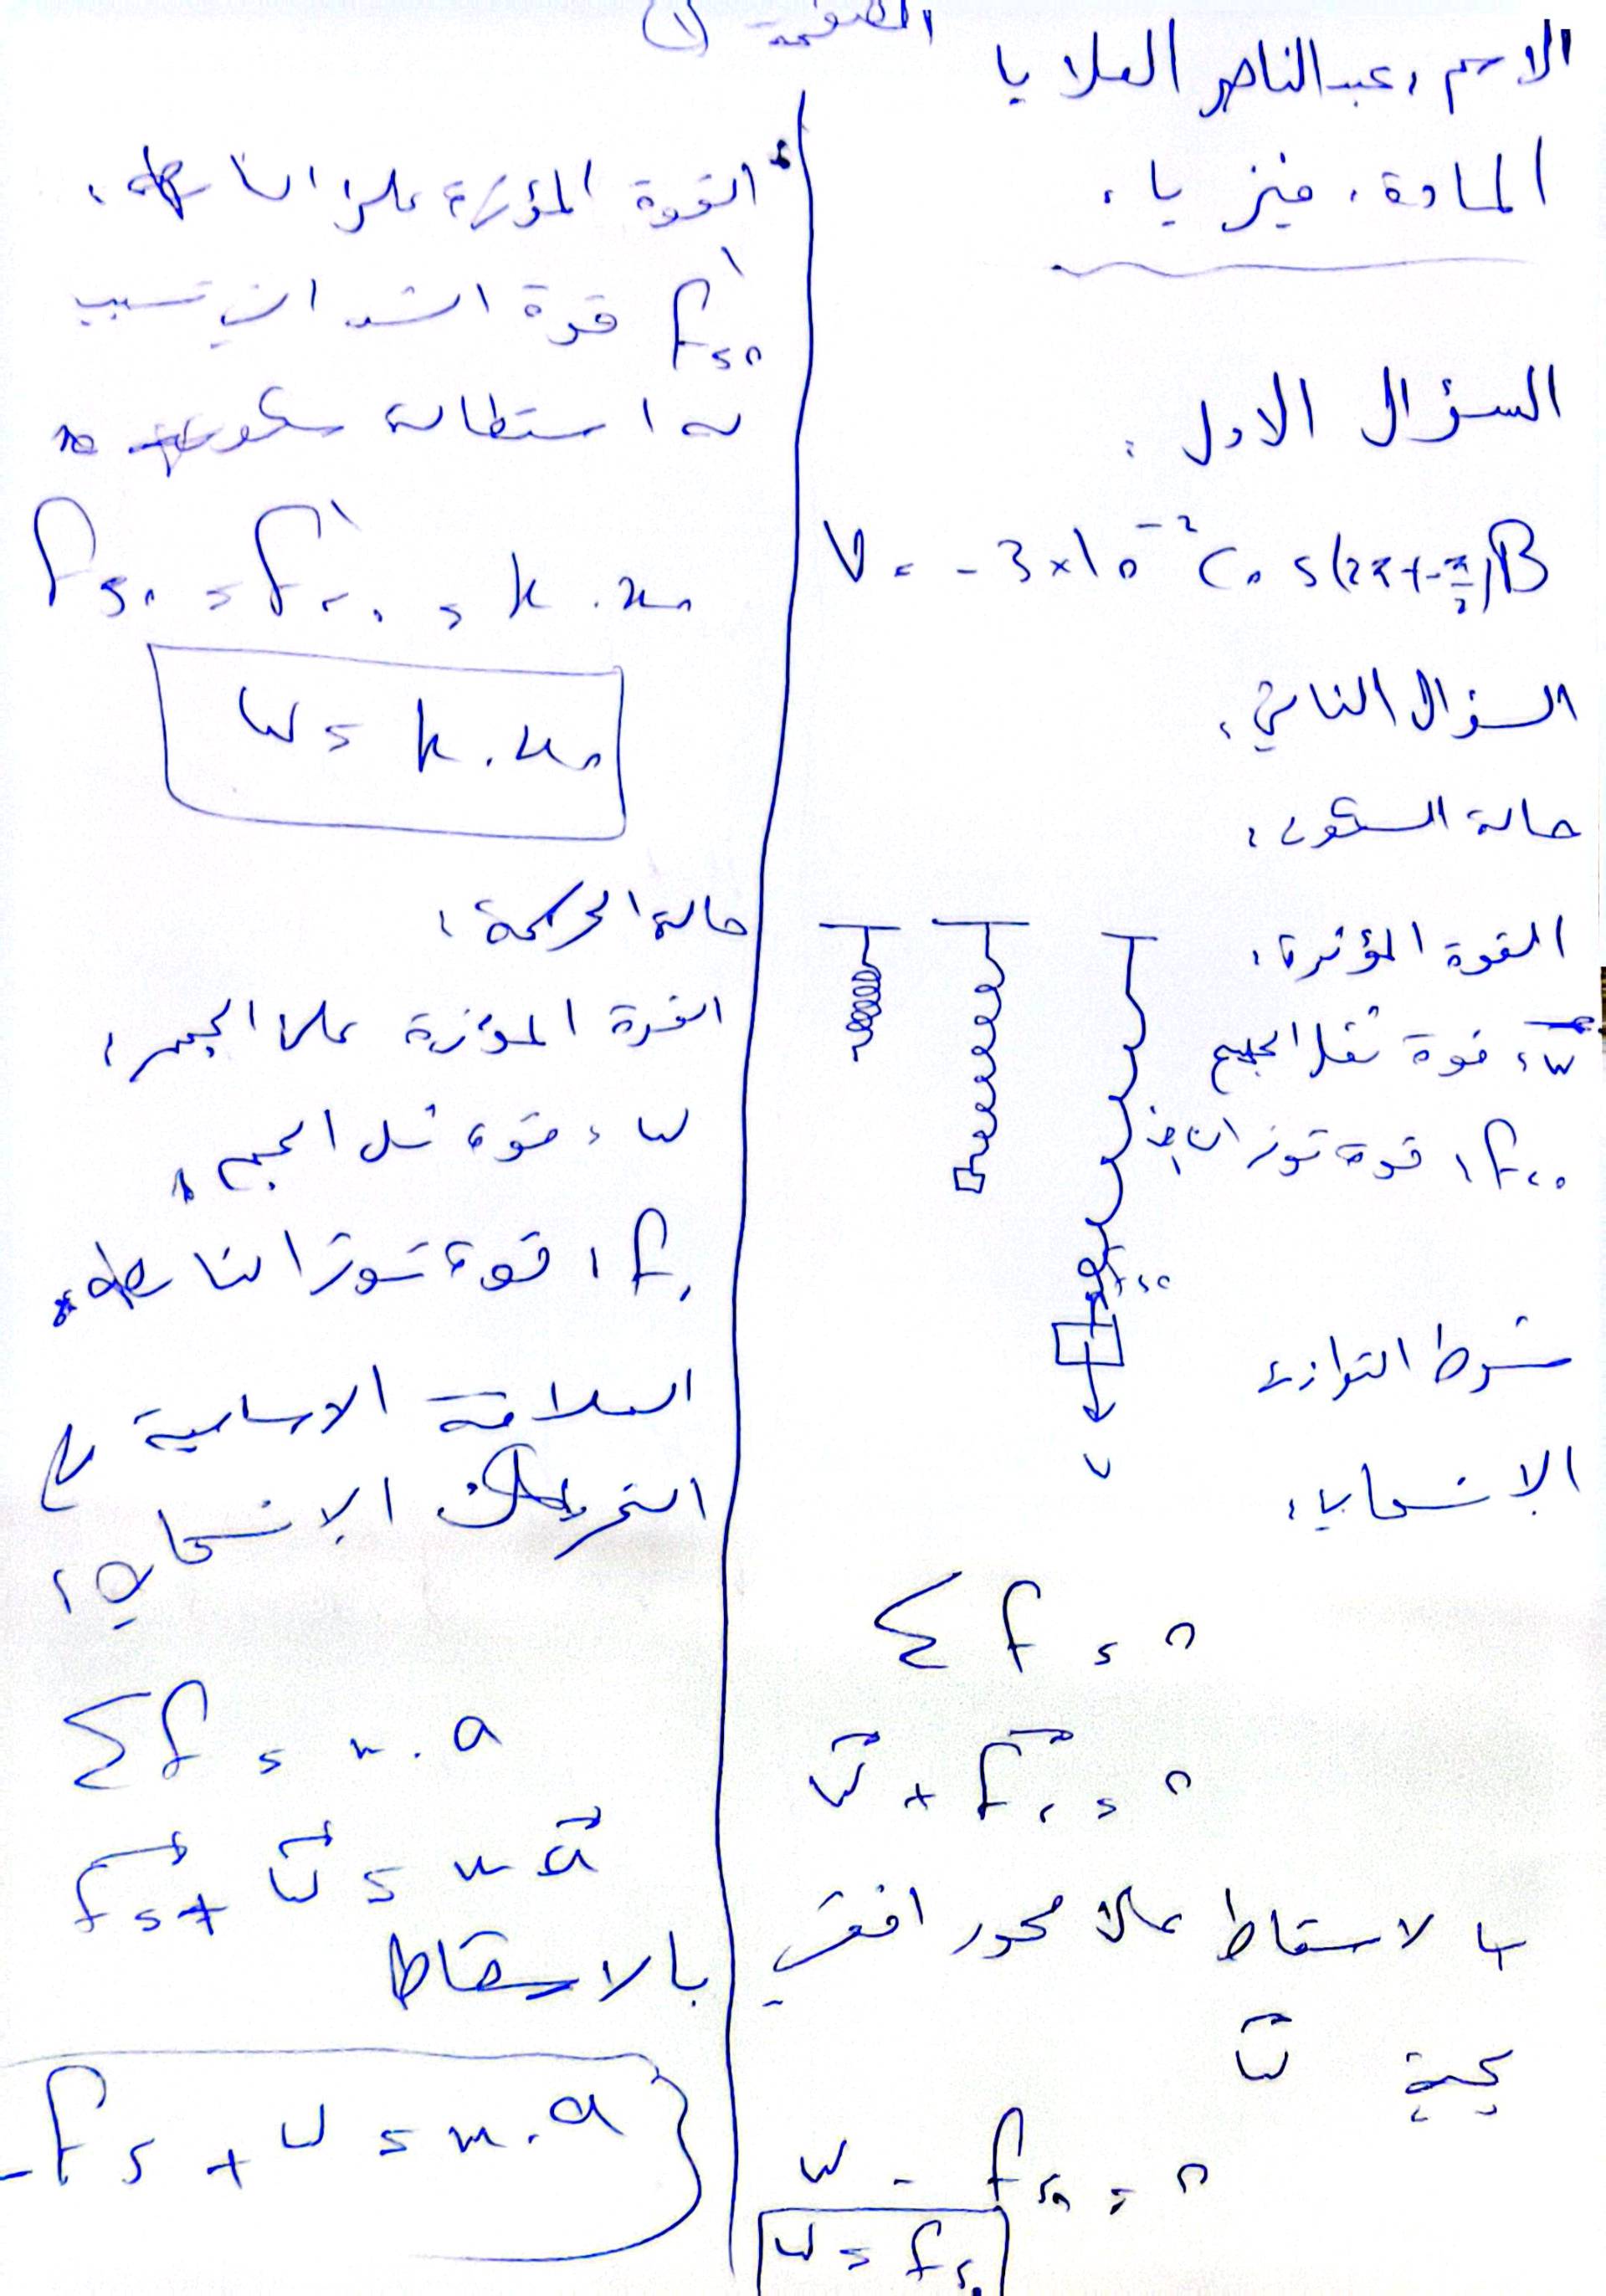 الاسم: عبد الناصر العلايا
المادة: فيزياء
السؤال الاول:
B) V = -3×10⁻² Cos(2π t - π/2)
السؤال الثاني:
حالة السكون:
القوة المؤثرة:
W: قوة ثقل الجسم
Fs0: قوة توتر النابض
Fs0
شرط التوازن
الانسحابي:
Σ F = 0
W⃗ + F⃗s0 = 0
بالاسقاط على محور افقي
بجهة W⃗
W - Fs0 = 0
W = Fs0
القوة المؤثرة على النابض:
F's0 قوة الشد التي تسبب
له استطالة سكونية
Fs0 = F's0 = k . x0
W = k . x0
حالة الحركة:
القوة المؤثرة على الجسم:
W: قوة ثقل الجسم
Fs: قوة توتر النابض
العلاقة الاساسية في
التحريك الانسحابي:
ΣF = m . a
F⃗s + W⃗ = m a⃗
بالاسقاط
-Fs + W = m . a